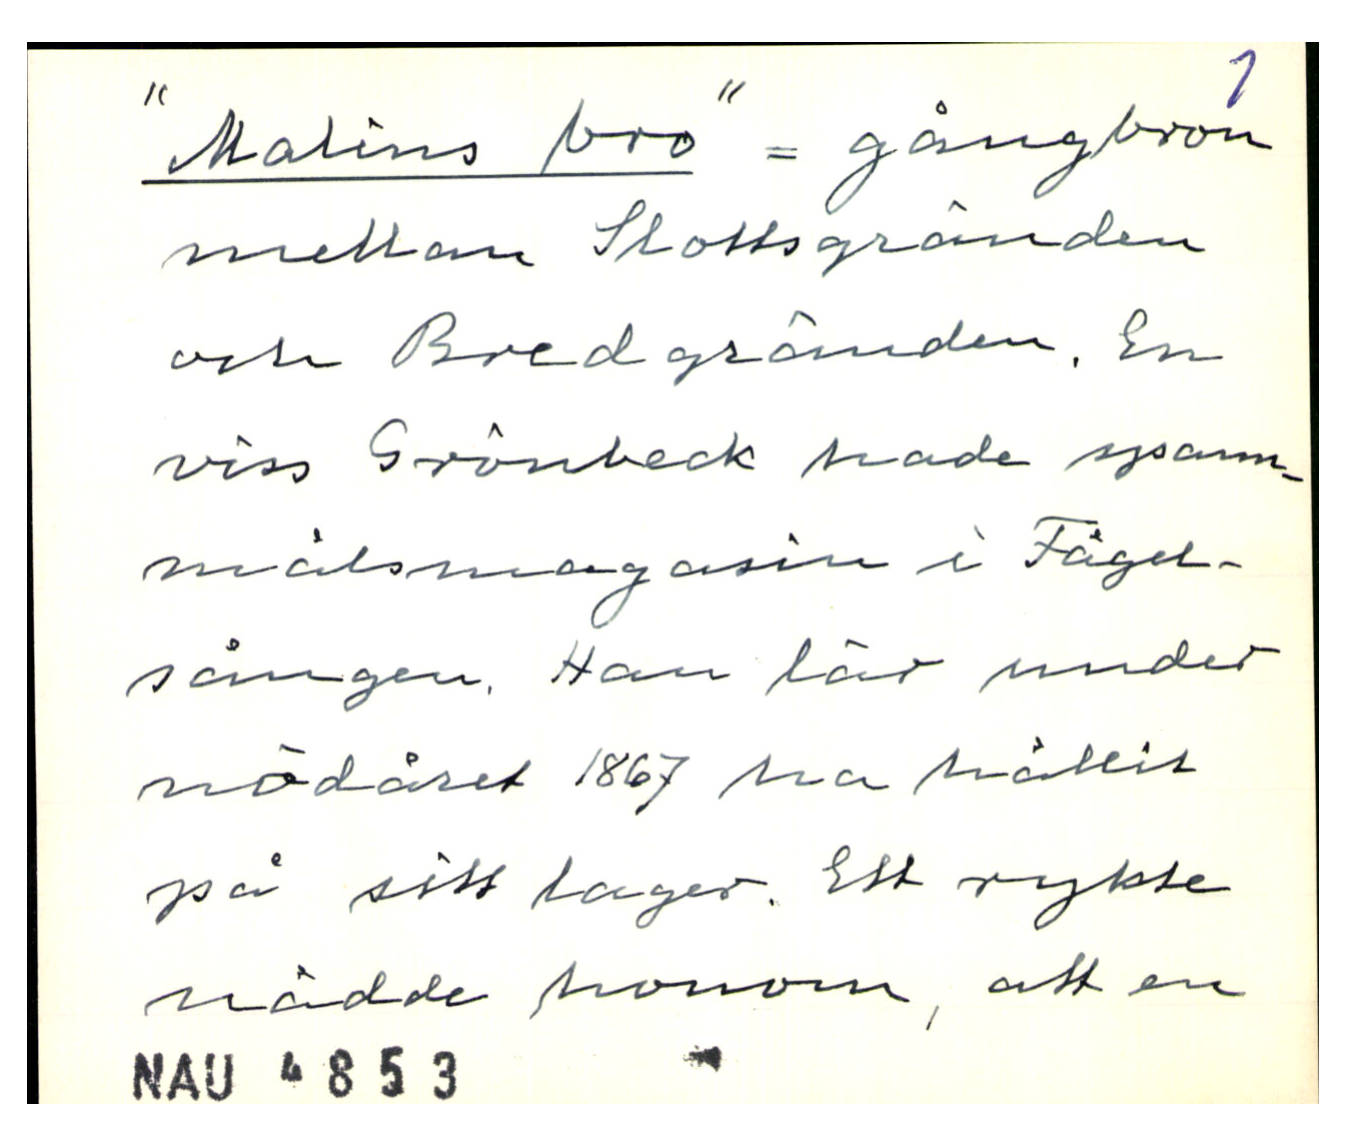 1
"Malins bro" = gångbron
mellan Slottsgränden
och Bredgränden. En
viss Grönbeck hade spann-
målsmagasin i Fågel-
sången. Han lär under
nödåret 1867 ha hållit
på sitt lager. Ett rykte
nådde honom, att en
NAU 4853